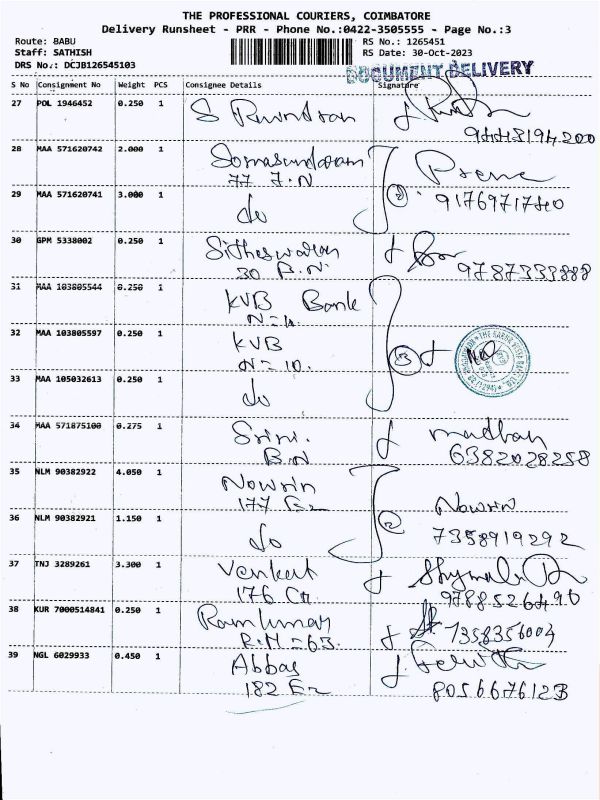 THE PROFESSIONAL COURIERS, COIMBATORE
Delivery Runsheet - PRR - Phone No.:0422-3505555 - Page No.:3
Route: BABU RS No.: 1265451
Staff: SATHISH RS Date: 30-Oct-2023
DRS No.: DCJB126545103 DOCUMENT DELIVERY
S No Consignment No Weight PCS Consignee Details Signature
27 POL 1946452 0.250 1 S
28 MAA 571620742 2.000 1 Somasundaram
77 J.N
29 MAA 571620741 3.000 1 do 2 9176971740
30 GPM 5338002 0.250 1 Sitheswaran
30 B.N. 9787333888
31 MAA 103805544 0.250 1 KVB Bank
32 MAA 103805597 0.250 1 KVB
N=10. 3
33 MAA 105032613 0.250 1 do
34 MAA 571875100 0.275 1 Srini. madhan
B.N 6382028258
35 NLM 90382922 4.050 1 Nowrin
177 Nowrin
36 NLM 90382921 1.150 1 do 2 7358919292
37 TNJ 3289261 3.300 1 Venkat
176 9788526490
38 KUR 7000514841 0.250 1 Ramkumar
R.M=63. 7358356004
39 NGL 6029933 0.450 1 Abbas
182 8056676123